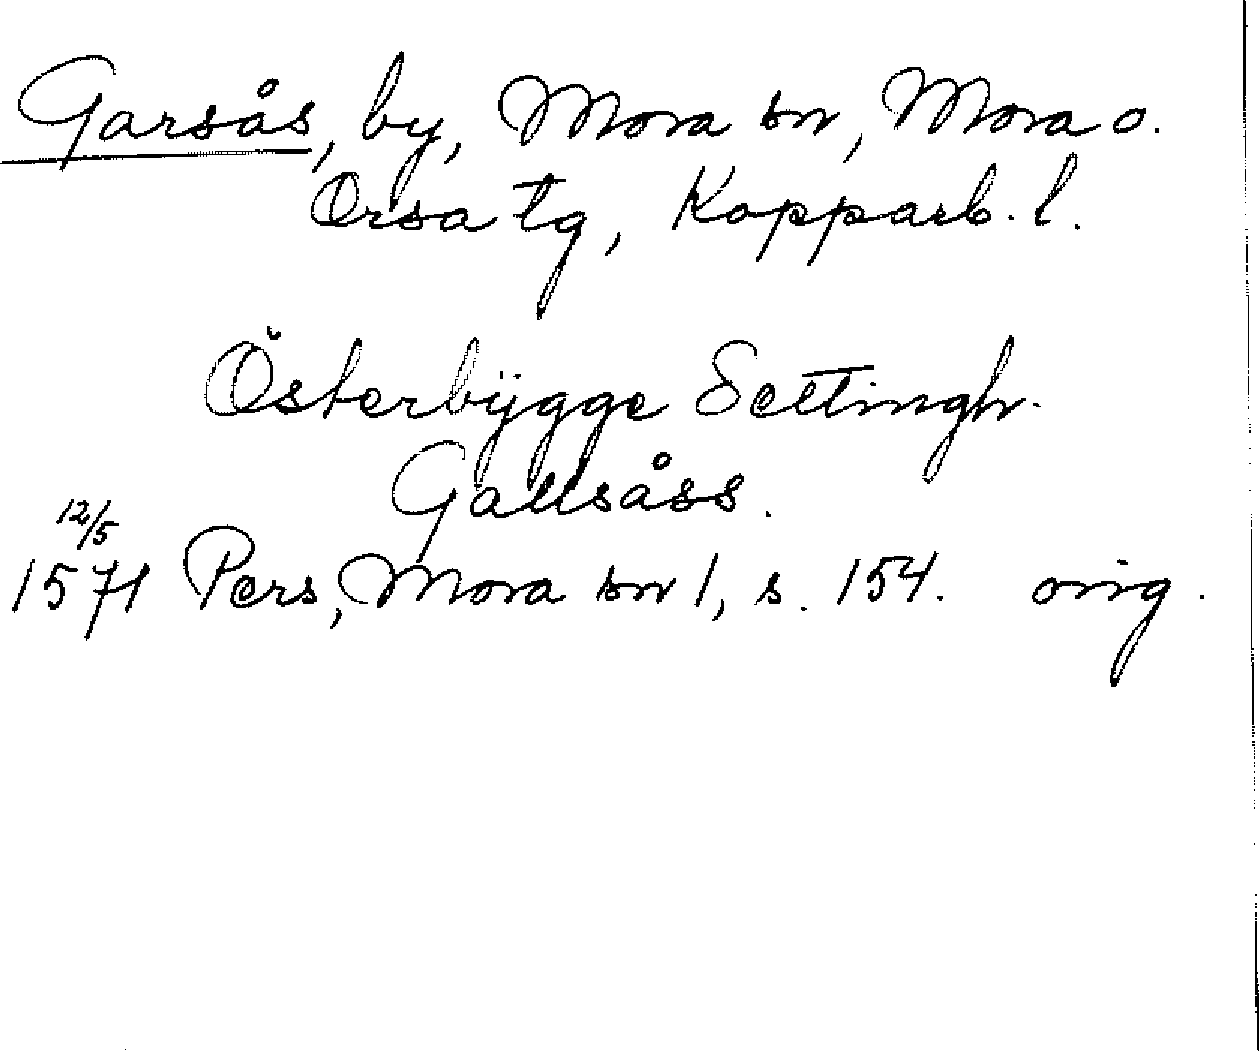 Garsås, by, Mora sn, Mora o.
Orsa tg, Kopparb. l.
Österbÿgge Settingh.
Gallsåss.
12/5
1571 Pers, Mora sn 1, s. 154. orig.